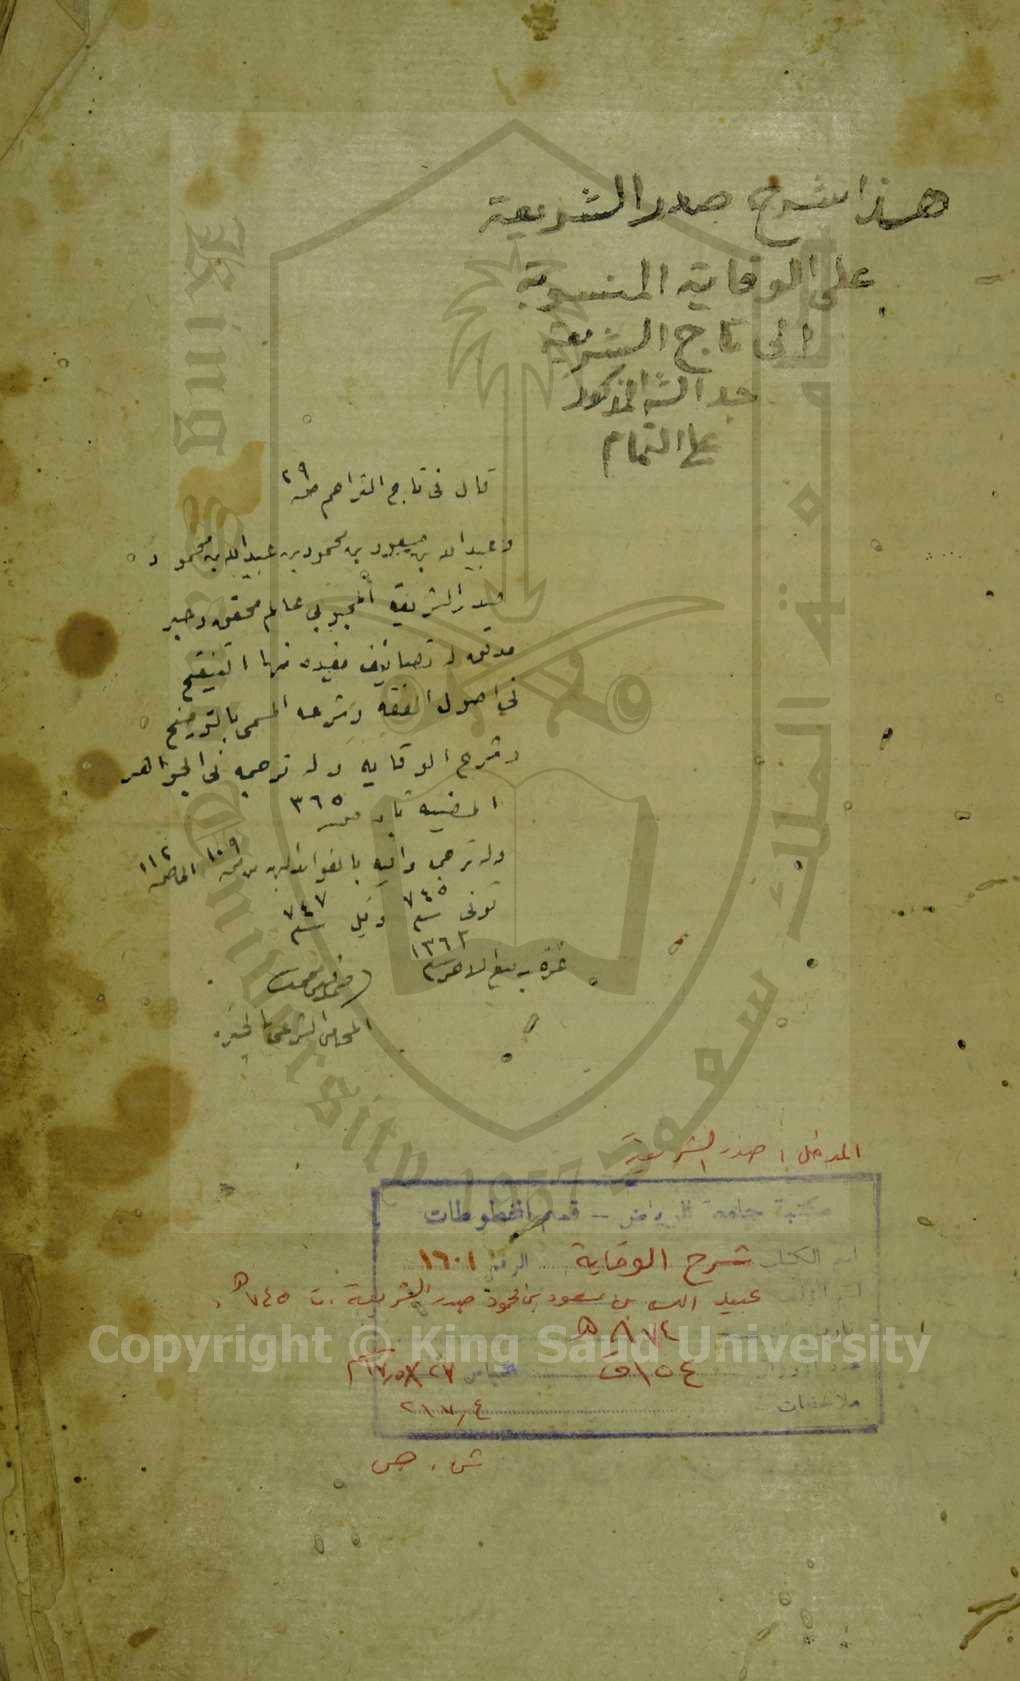 هذا شرح صدر الشريعة
على الوقاية المنسوبة
الى تاج الشريعة
جد الشا المذكور
على التمام
قال فى تاج التراجم صـ ٢٩
وعبيد الله بن مسعود بن محمود بن عبيد الله بن محمود
صدر الشريعه المحبوبي عالم محقق وحبر
مدقق له تصانيف مفيده منها التنقيح
في اصول الفقه وشرحه المسمى بالتوضيح
وشرح الوقايه وله ترجمه فى الجواهر
المضيه ٣٦٥
وله ترجمه وافيه بالفوائد البهيه من صـ ١٠٩ الى صـ ١١٢
توفى سـ ٧٤٥ وقيل سـ ٧٤٧
غرة ربيع الاخر سـ ١٣٦٢
المحامى الشرعى
المدخل : صدر الشريعة
مكتبة جامعة الرياض - قسم المخطوطات
اسم الكتاب شرح الوقاية الرقم ١٦٠١
اسم المؤلف عبيد الله بن مسعود بن محمود صدر الشريعة . ت ٧٤٥ هـ
٨٧٤ هـ
عدد الأوراق ١٥٤ ق القياس ٢٧ × ١٧٫٥ سم
ملاحظات ٢١٧٫٤
ش . ص
King Saud University 1957
جامعة الملك سعود
Copyright © King Saud University